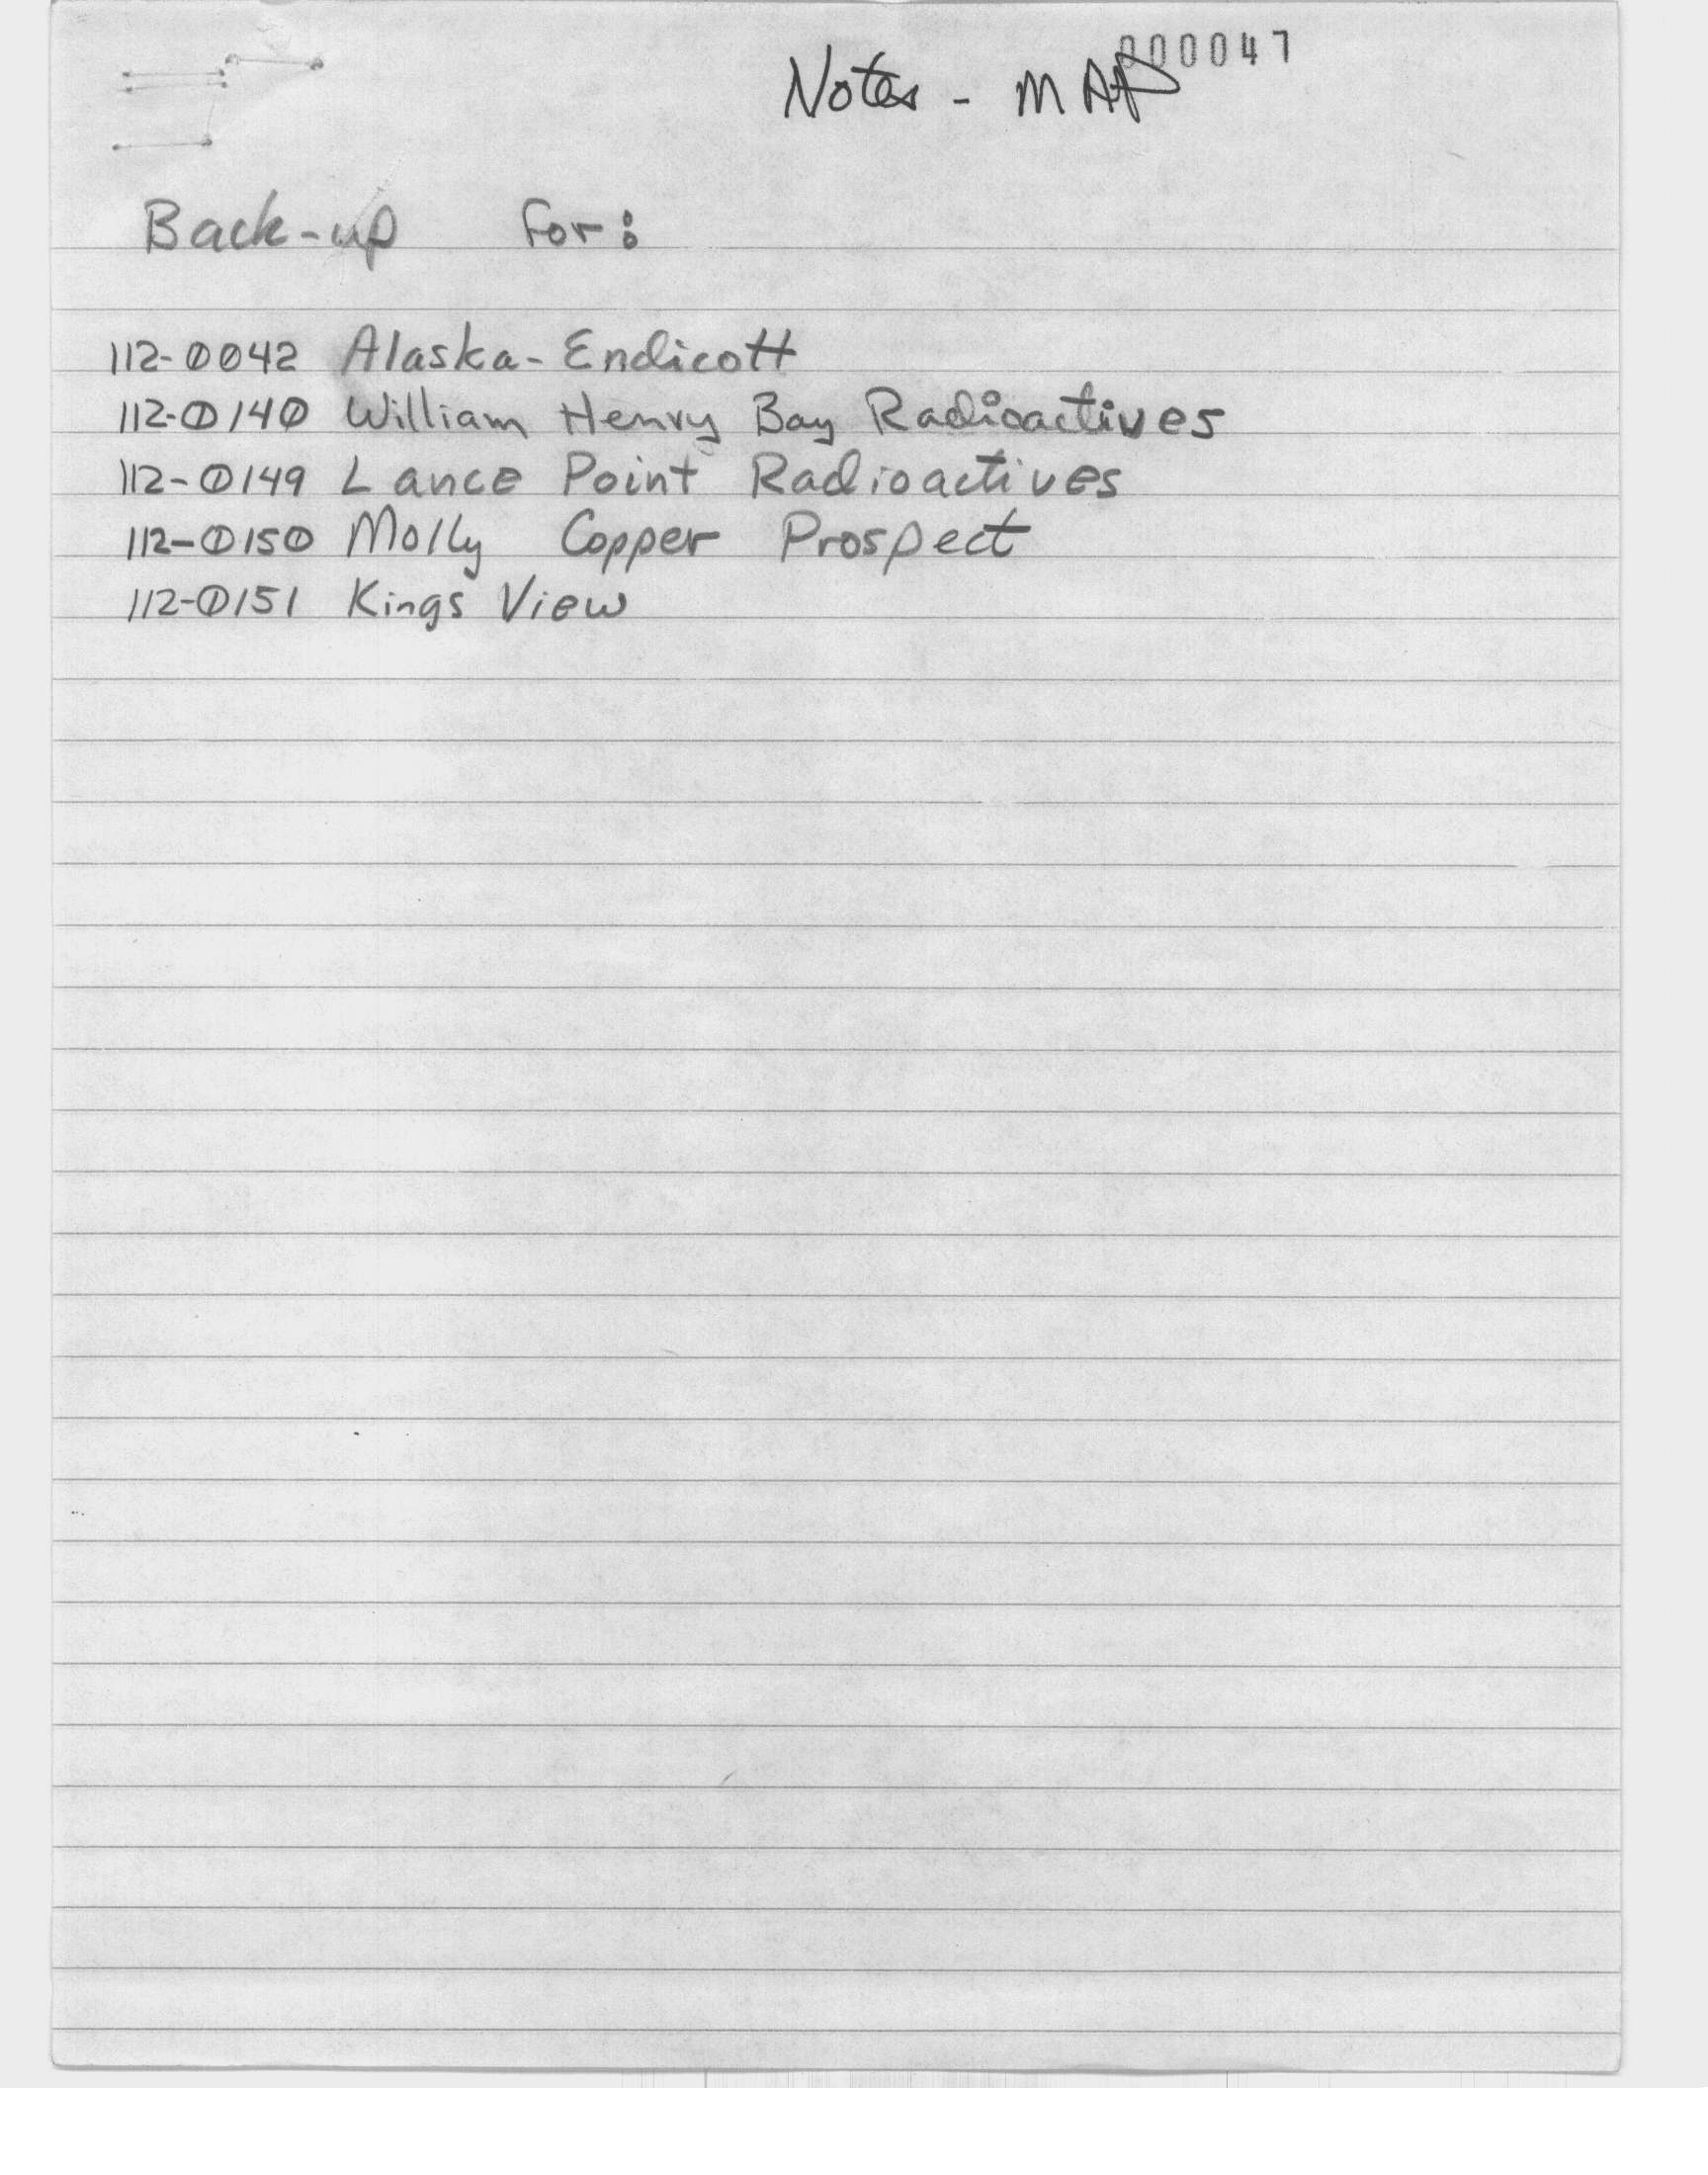 000047
Notes - MAP
Back-up for:
112-0042 Alaska-Endicott
112-0140 William Henry Bay Radioactives
112-0149 Lance Point Radioactives
112-0150 Molly Copper Prospect
112-0151 Kings View